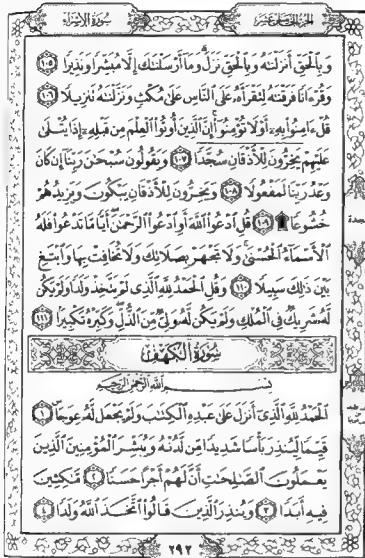 سُورَةُ الإِسْرَاءِ
الجُزْءُ الخَامِسَ عَشَرَ
وَبِالْحَقِّ أَنزَلْنَٰهُ وَبِالْحَقِّ نَزَلَ وَمَا أَرْسَلْنَٰكَ إِلَّا مُبَشِّرًا وَنَذِيرًا ١٠٥
وَقُرْءَانًا فَرَقْنَٰهُ لِتَقْرَأَهُ عَلَى النَّاسِ عَلَىٰ مُكْثٍ وَنَزَّلْنَٰهُ تَنزِيلًا ١٠٦
قُلْ ءَامِنُوا بِهِ أَوْ لَا تُؤْمِنُوا إِنَّ الَّذِينَ أُوتُوا الْعِلْمَ مِن قَبْلِهِ إِذَا يُتْلَىٰ
عَلَيْهِمْ يَخِرُّونَ لِلْأَذْقَانِ سُجَّدًا ١٠٧ وَيَقُولُونَ سُبْحَٰنَ رَبِّنَا إِن كَانَ
وَعْدُ رَبِّنَا لَمَفْعُولًا ١٠٨ وَيَخِرُّونَ لِلْأَذْقَانِ يَبْكُونَ وَيَزِيدُهُمْ
خُشُوعًا ۩ ١٠٩ قُلِ ادْعُوا اللَّهَ أَوِ ادْعُوا الرَّحْمَٰنَ أَيًّا مَّا تَدْعُوا فَلَهُ
الْأَسْمَاءُ الْحُسْنَىٰ وَلَا تَجْهَرْ بِصَلَاتِكَ وَلَا تُخَافِتْ بِهَا وَابْتَغِ
بَيْنَ ذَٰلِكَ سَبِيلًا ١١٠ وَقُلِ الْحَمْدُ لِلَّهِ الَّذِي لَمْ يَتَّخِذْ وَلَدًا وَلَمْ يَكُن
لَّهُ شَرِيكٌ فِي الْمُلْكِ وَلَمْ يَكُن لَّهُ وَلِيٌّ مِّنَ الذُّلِّ وَكَبِّرْهُ تَكْبِيرًا ١١١
سُورَةُ الكَهْفِ
بِسْمِ اللَّهِ الرَّحْمَٰنِ الرَّحِيمِ
الْحَمْدُ لِلَّهِ الَّذِي أَنزَلَ عَلَىٰ عَبْدِهِ الْكِتَٰبَ وَلَمْ يَجْعَل لَّهُ عِوَجًا ١
قَيِّمًا لِّيُنذِرَ بَأْسًا شَدِيدًا مِّن لَّدُنْهُ وَيُبَشِّرَ الْمُؤْمِنِينَ الَّذِينَ
يَعْمَلُونَ الصَّٰلِحَٰتِ أَنَّ لَهُمْ أَجْرًا حَسَنًا ٢ مَّٰكِثِينَ
فِيهِ أَبَدًا ٣ وَيُنذِرَ الَّذِينَ قَالُوا اتَّخَذَ اللَّهُ وَلَدًا ٤
٢٩٢